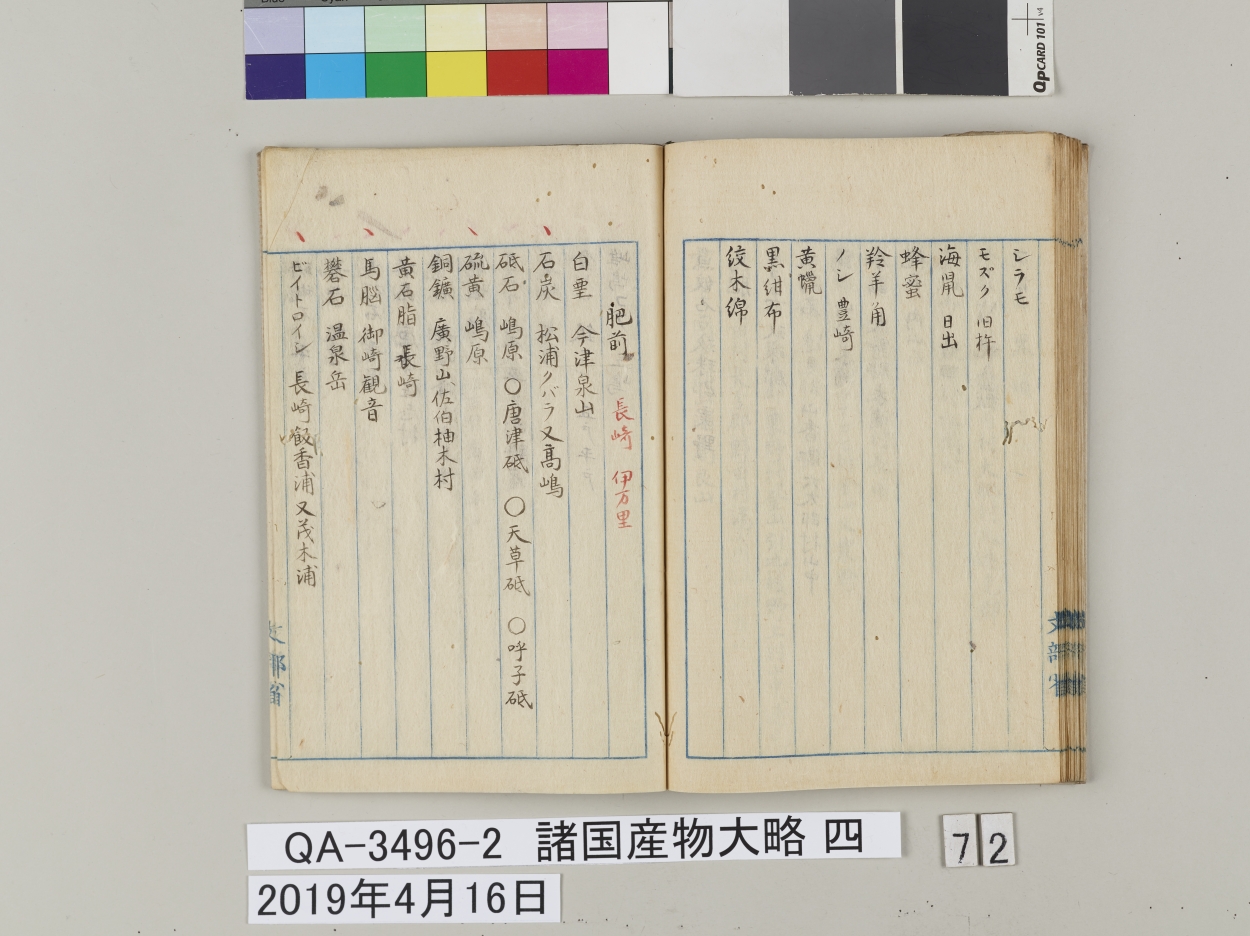 QPCARD 101 v4
シラモ
モズク 旧杵
海鼡 日出
蜂蜜
羚羊角
ノシ 豊崎
黄蠟
黒紺布
絞木綿
文部省
肥前 長崎 伊万里
白堊 今津泉山
石炭 松浦クバラ又髙嶋
砥石 嶋原 〇唐津砥 〇天草砥 〇呼子砥
硫黄 嶋原
銅鑛 廣野山、佐伯柚木村
黄石脂 長崎
馬脳 御崎観音
礬石 温泉岳
ビイトロイシ 長崎飯香浦又茂木浦
文部省
QA-3496-2 諸国産物大略 四
72
2019年4月16日